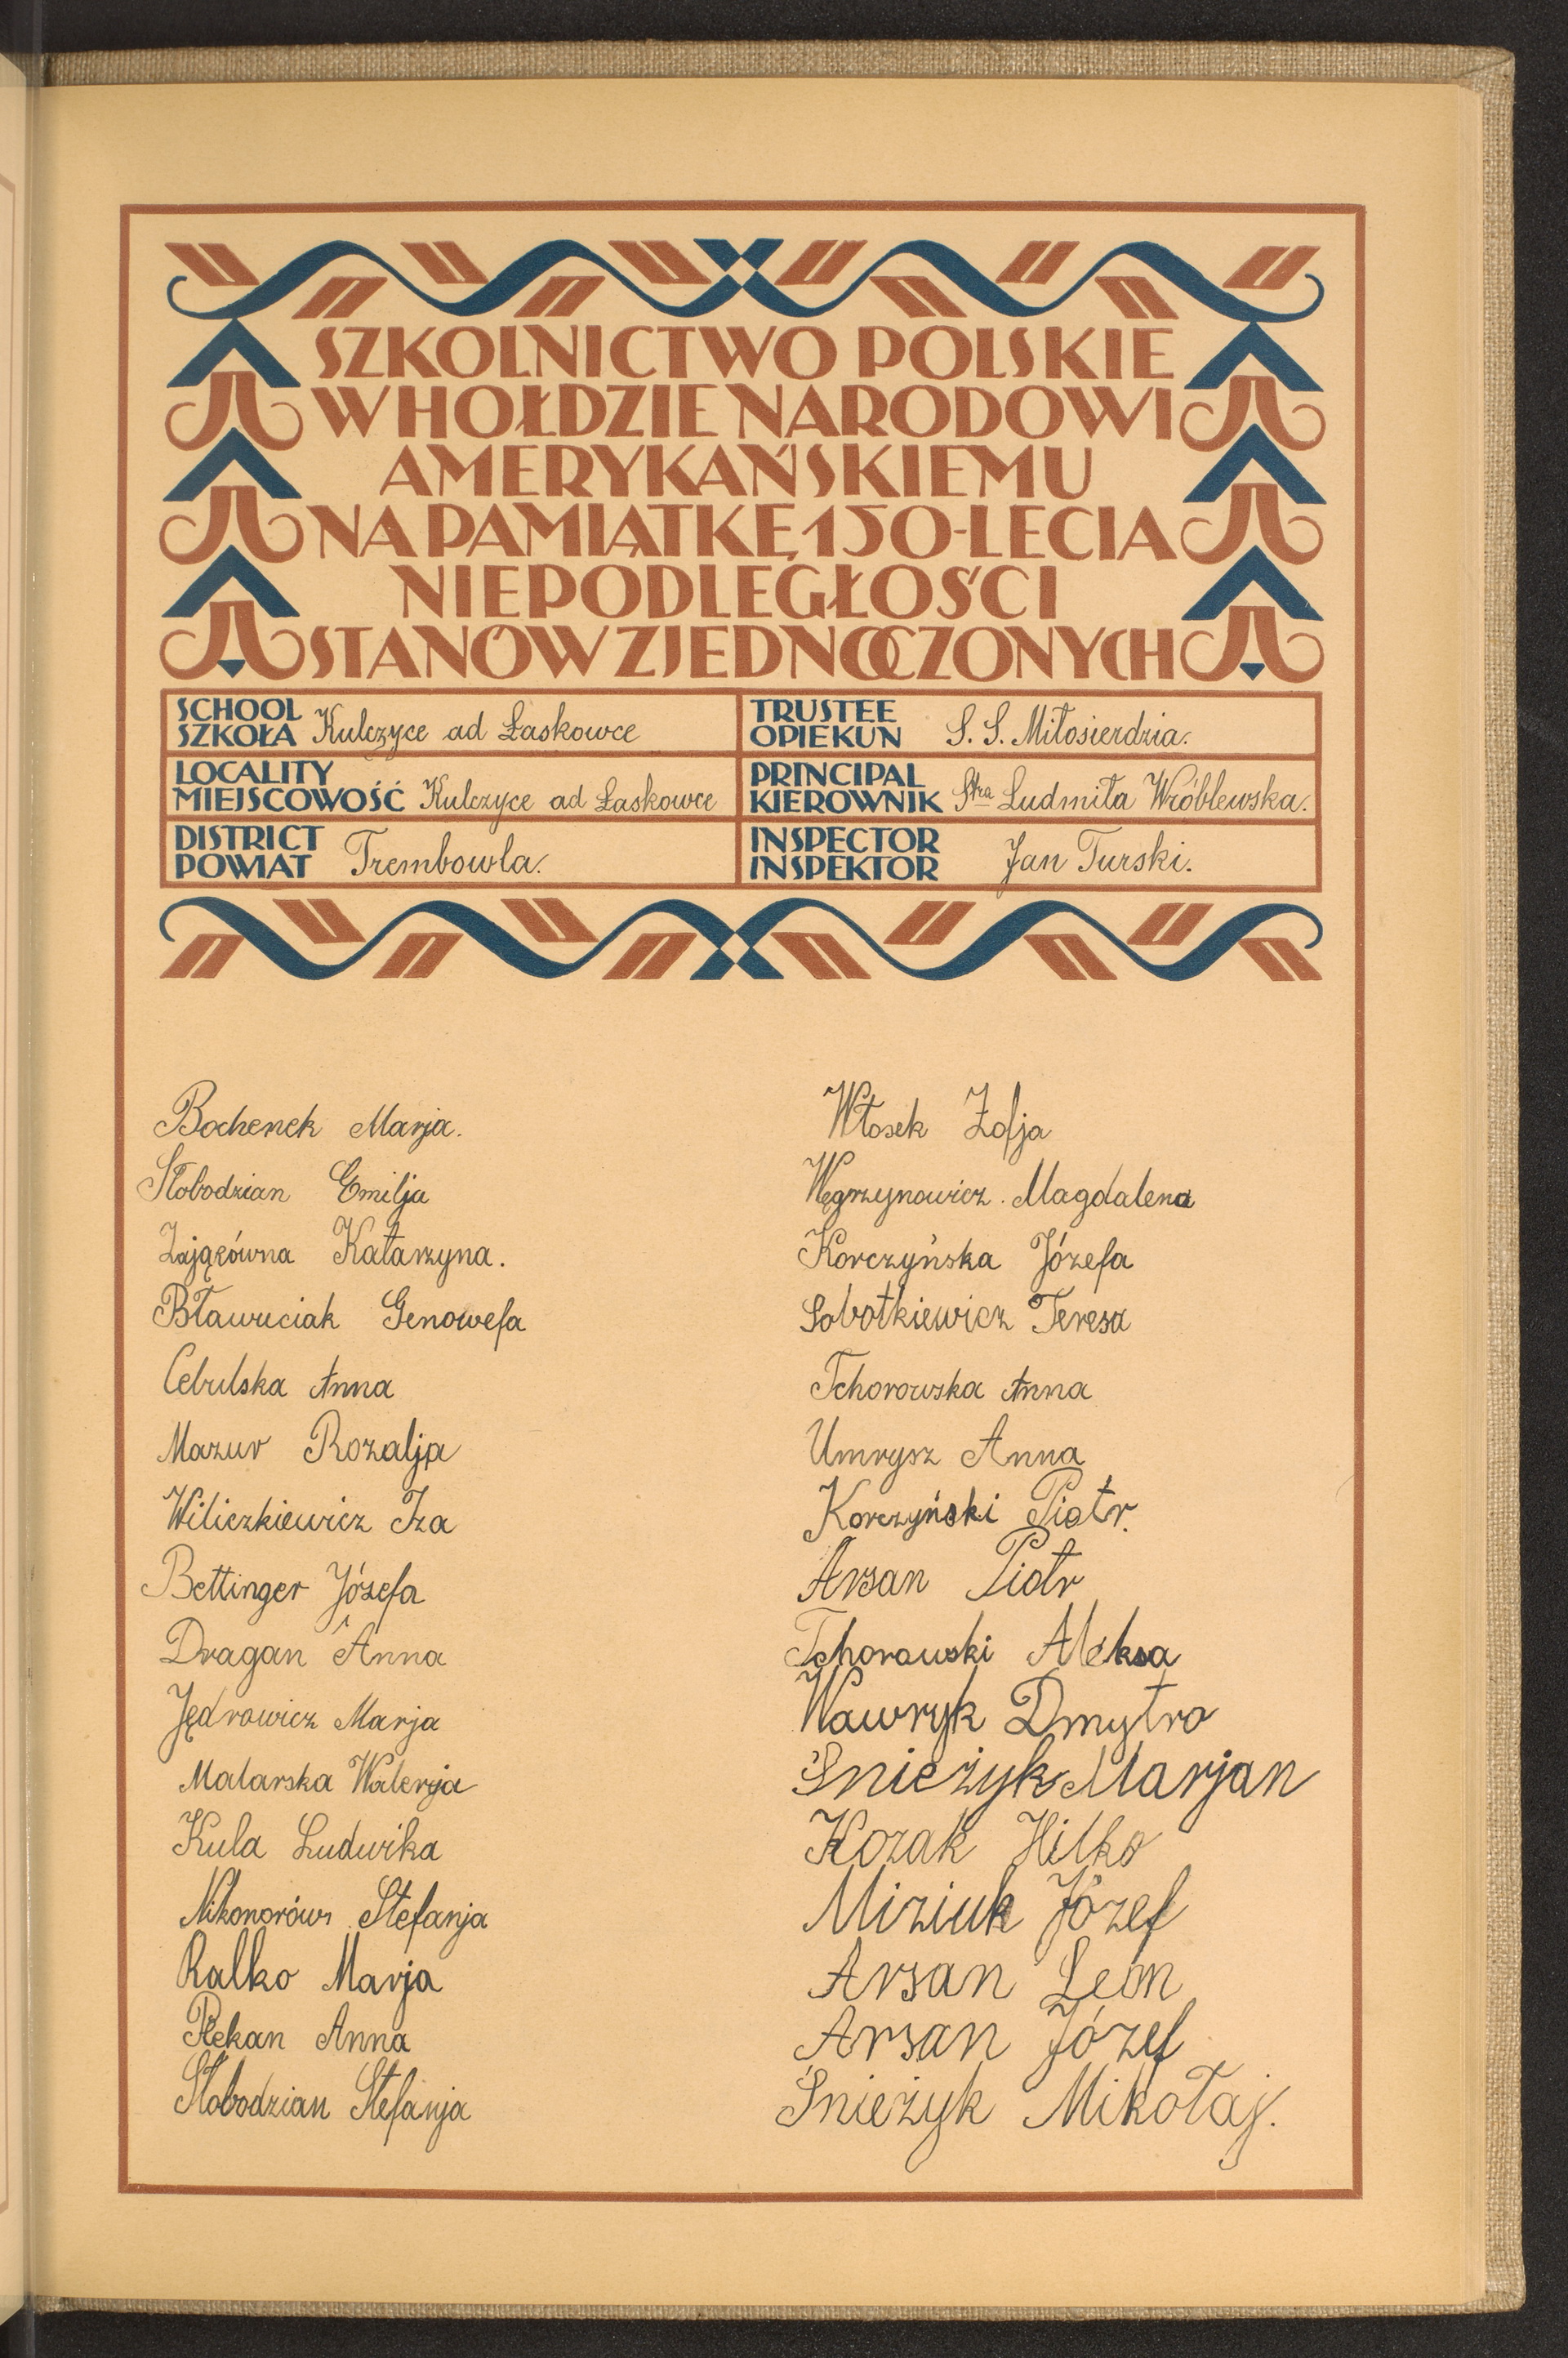 SZKOLNICTWO POLSKIE
W HOŁDZIE NARODOWI
AMERYKAŃSKIEMU
NA PAMIĄTKĘ 150-LECIA
NIEPODLEGŁOŚCI
STANÓW ZJEDNOCZONYCH
SCHOOL
SZKOŁA Kulczyce ad Łaskowce
TRUSTEE
OPIEKUN S. S. Miłosierdzia.
LOCALITY
MIEJSCOWOŚĆ Kulczyce ad Łaskowce
PRINCIPAL
KIEROWNIK Stra Ludmiła Wróblewska.
DISTRICT
POWIAT Trembowla.
INSPECTOR
INSPEKTOR Jan Turski.
Bochenek Marja.
Słobodzian Emilja
Zającówna Katarzyna.
Bławuciak Genowefa
Cebulska Anna
Mazur Rozalja
Wiliczkiewicz Iza
Bettinger Józefa
Dragan Anna
Jędrowicz Marja
Malarska Walerja
Kula Ludwika
Nikonorów Stefanja
Ralko Marja
Pekan Anna
Słobodzian Stefanja
Włosek Zofja
Węgrzynowicz. Magdalena
Korczyńska Józefa
Sobotkiewicz Teresa
Tchorowska Anna
Umrysz Anna
Korczyński Piotr.
Arsan Piotr
Tchorowski Aleksa
Wawryk Dmytro
Śnieżyk Marjan
Kozak Hilko
Miziuk Józef
Arsan Leon
Arsan Józef
Śnieżyk Mikołaj.